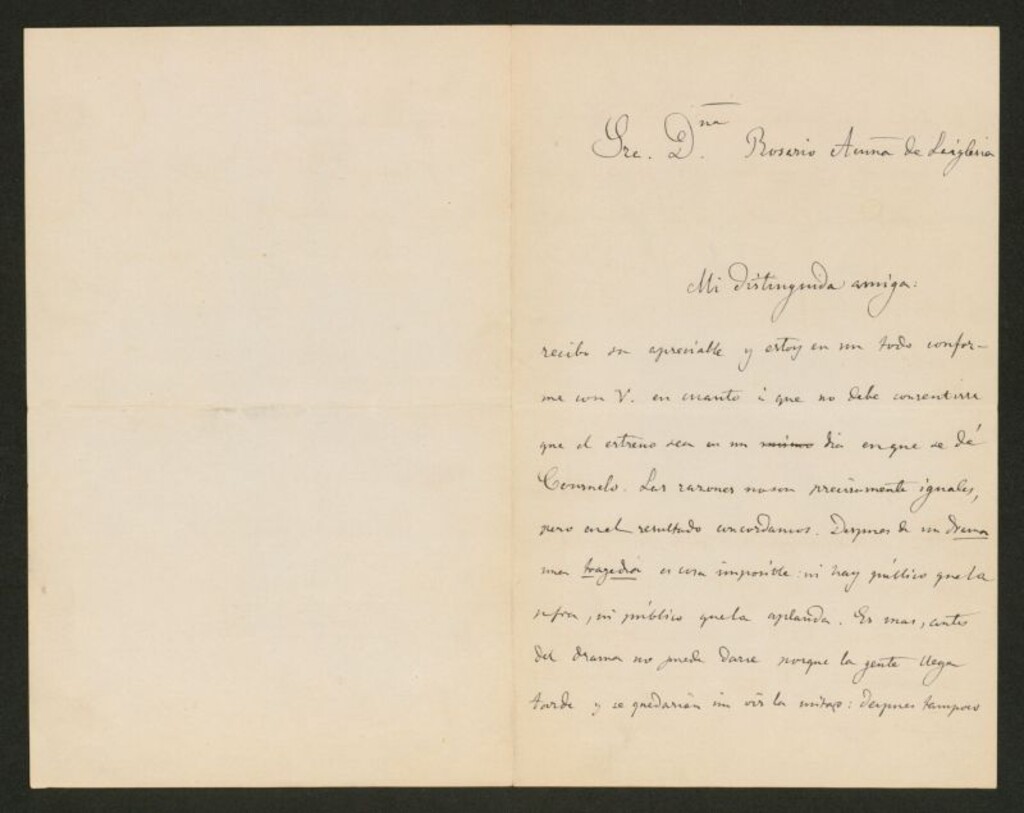 Sra. Dña Rosario Acuña de Laiglesia
Mi distinguida amiga:
recibo su apreciable y estoy en un todo confor-
me con V. en cuanto à que no debe consentirse
que el estreno sea en un mismo dia en que se dé
Consuelo. Las razones no son precisamente iguales,
pero en el resultado concordamos. Despues de un drama
una tragedia es cosa imposible: ni hay público que la
sufra, ni público que la aplauda. Es mas, antes
del drama no puede darse porque la gente llega
tarde y se quedarían sin oír la mitad: despues tampoco